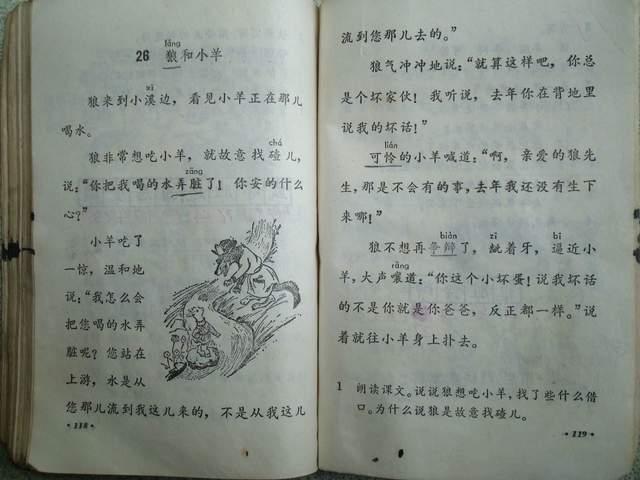 láng
26 狼和小羊
xī
狼来到小溪边，看见小羊正在那儿
喝水。
chá
狼非常想吃小羊，就故意找碴儿，
zāng
说：“你把我喝的水弄脏了！你安的什么
心？”
小羊吃了
一惊，温和地
说：“我怎么会
把您喝的水弄
脏呢？您站在
上游，水是从
您那儿流到我这儿来的，不是从我这儿
·118·
流到您那儿去的。”
狼气冲冲地说：“就算这样吧，你总
是个坏家伙！我听说，去年你在背地里
说我的坏话！”
lián
可怜的小羊喊道：“啊，亲爱的狼先
生，那是不会有的事，去年我还没有生下
来哪！”
biàn zī bī
狼不想再争辩了，龇着牙，逼近小
rāng
羊，大声嚷道：“你这个小坏蛋！说我坏话
的不是你就是你爸爸，反正都一样。”说
着就往小羊身上扑去。
1 朗读课文。说说狼想吃小羊，找了些什么借
口。为什么说狼是故意找碴儿。
·119·